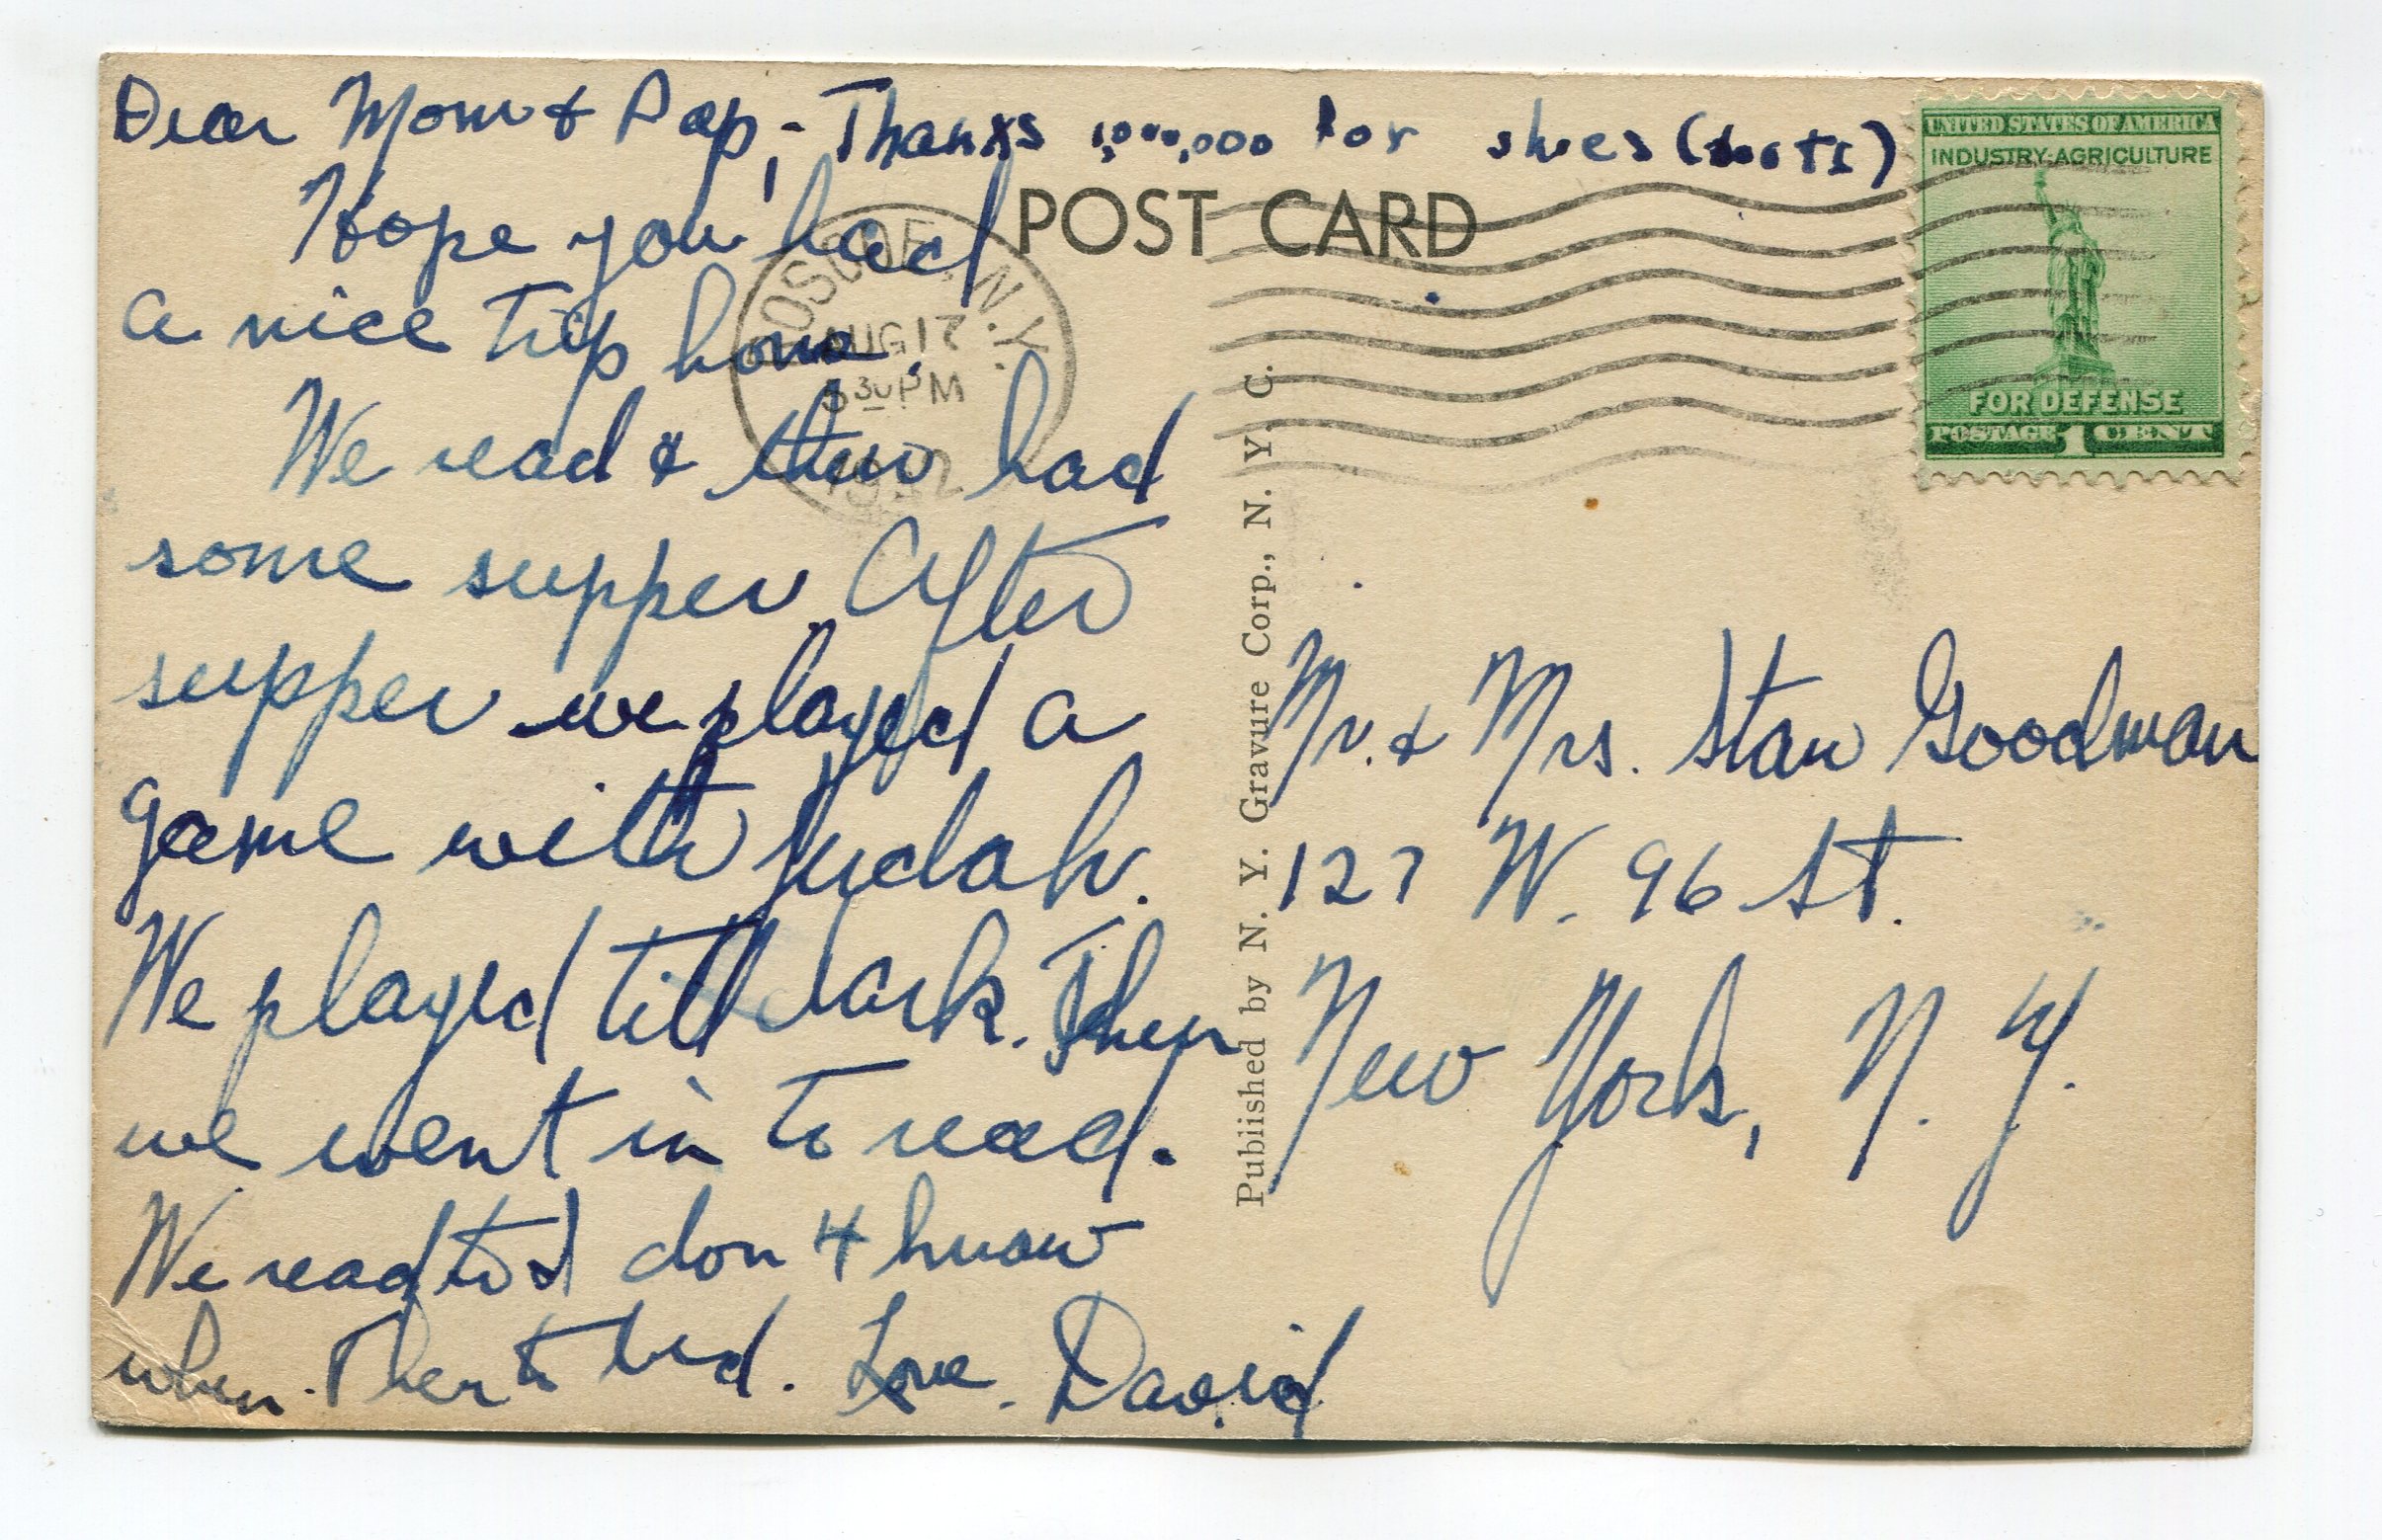 Dear Mom & Pop, - Thanks 1,000,000 for shoes (boots)
Hope you had
a nice trip home.
We read & then had
some supper. After
supper we played a
game with Judah.
We played till dark. Then
we went in to read.
We read to I don't know
when. Then to bed. Love. David
POST CARD
ROSCOE, N.Y.
AUG 17
30 PM
1942
UNITED STATES OF AMERICA
INDUSTRY-AGRICULTURE
FOR DEFENSE
POSTAGE 1 CENT
Published by N. Y. Gravure Corp., N. Y. C.
Mr. & Mrs. Stan Goodman
127 W. 96 St.
New York, N. Y.